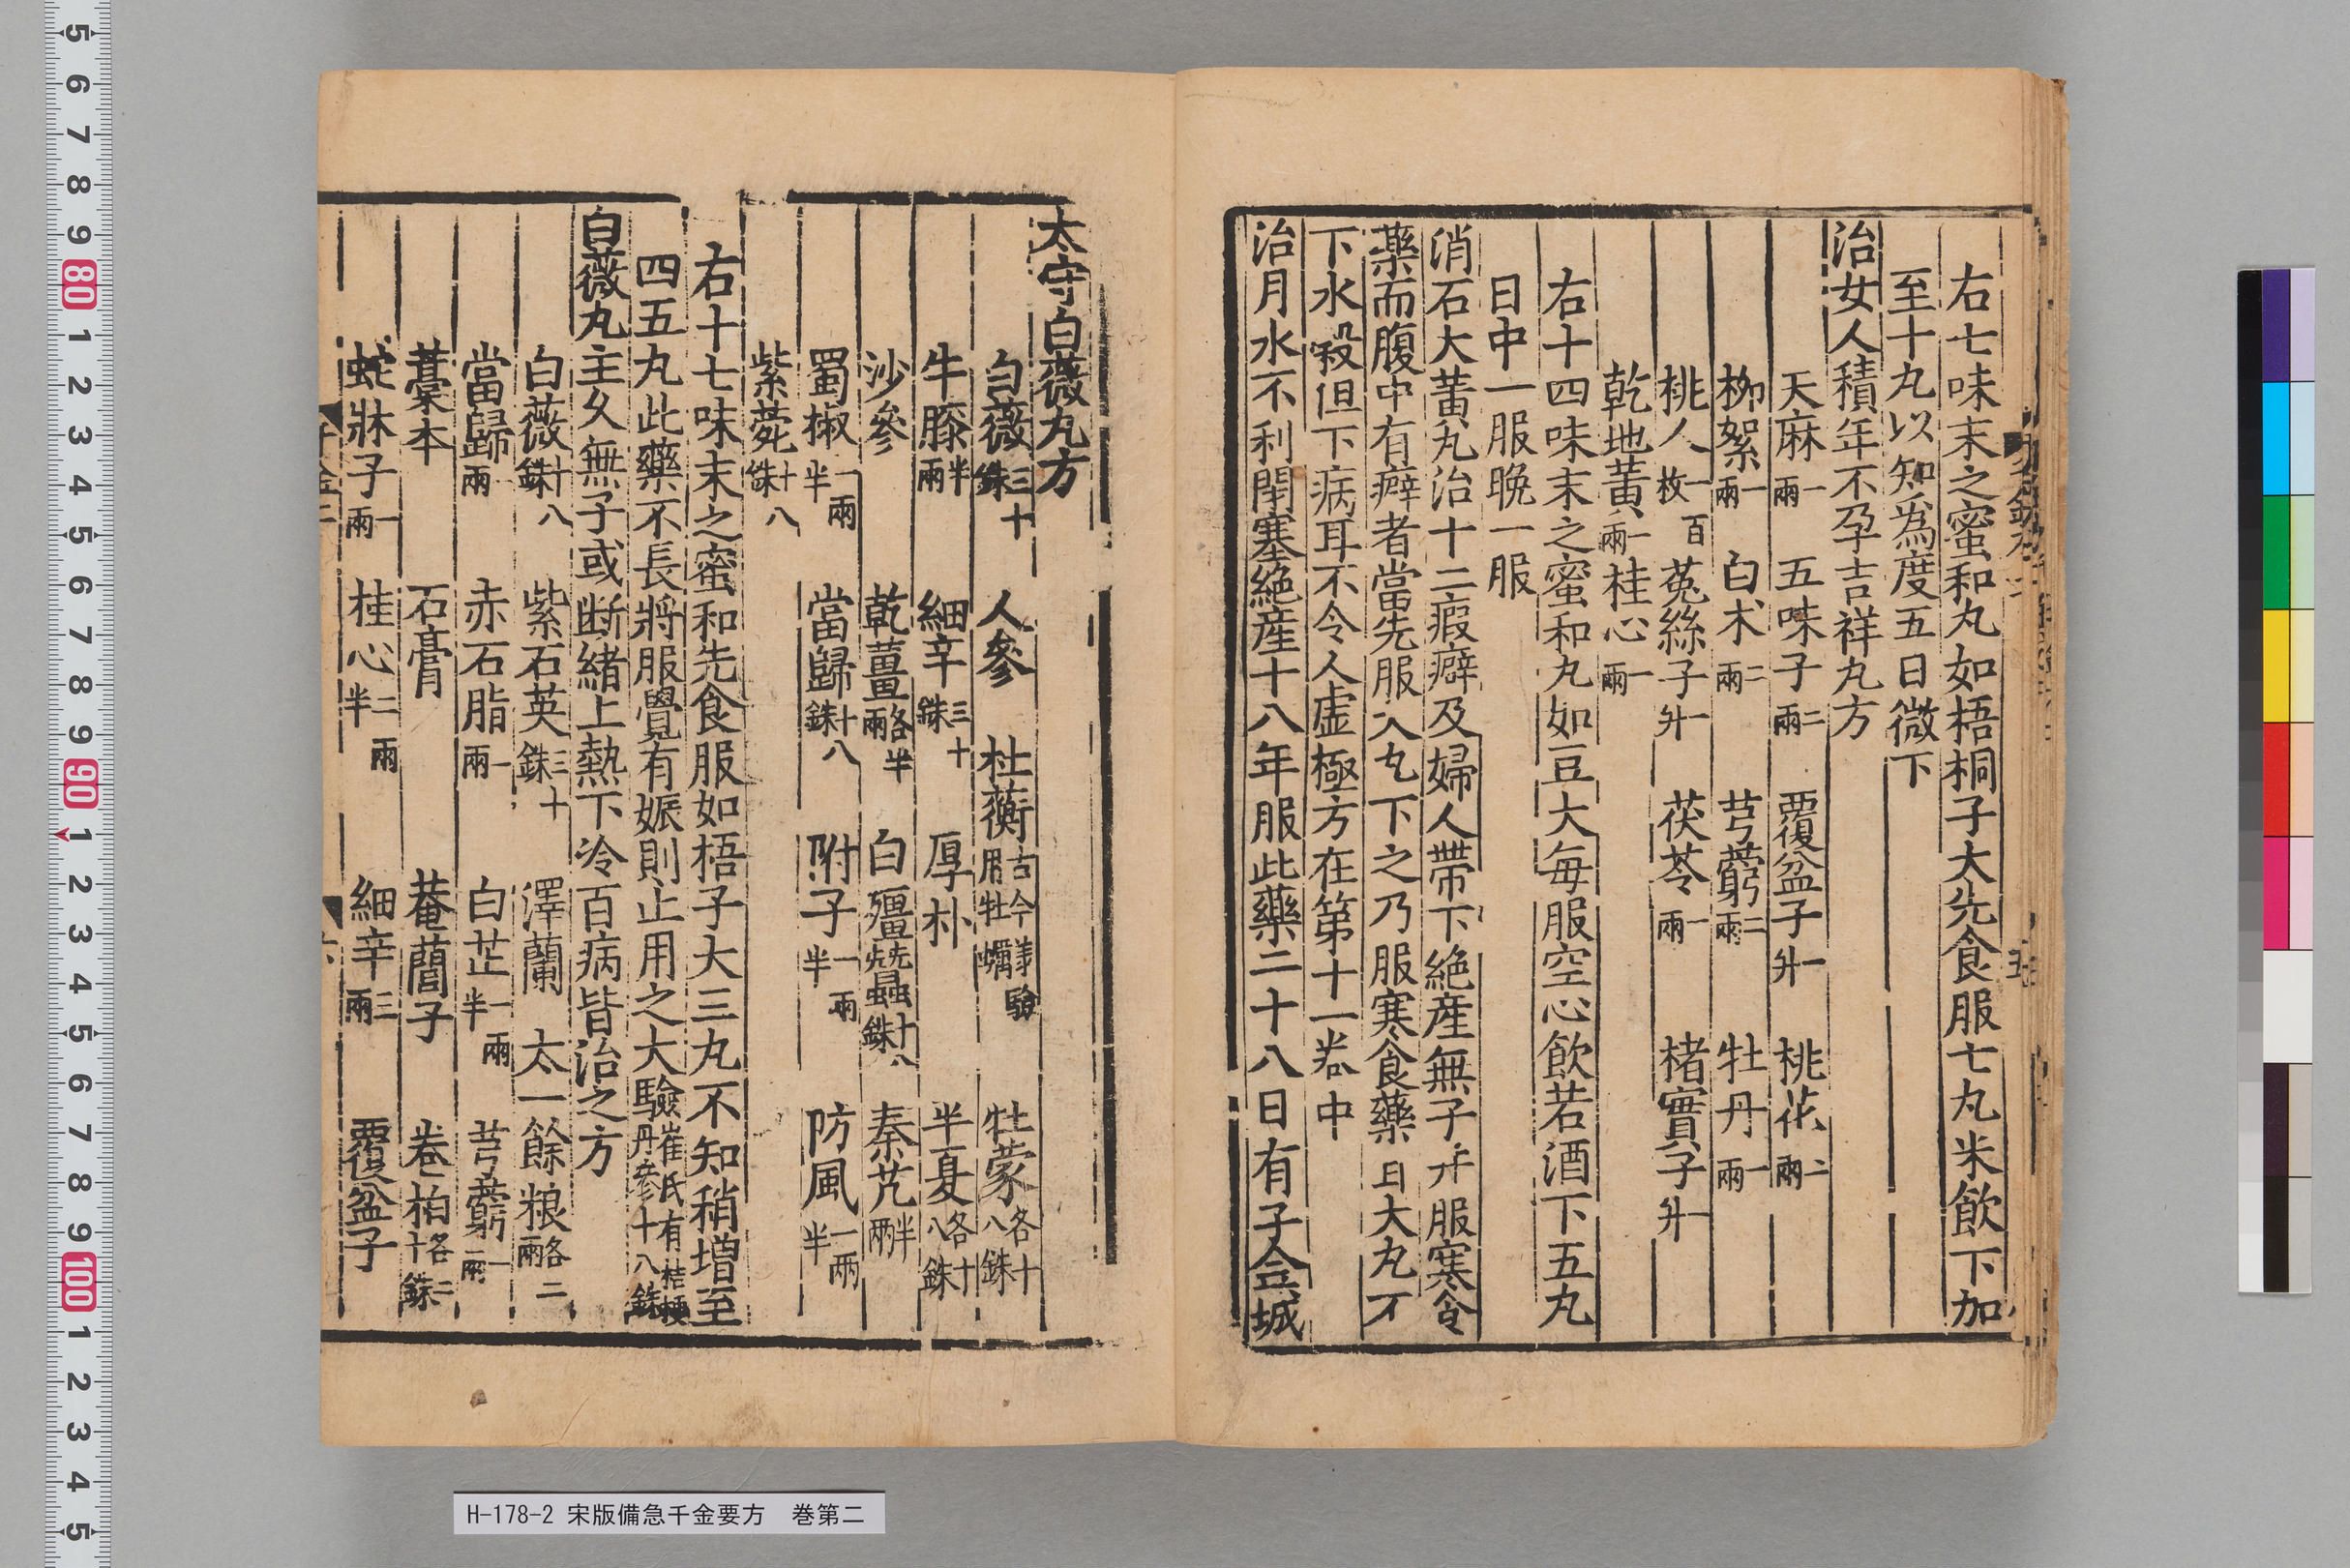 右七味末之蜜和丸如梧桐子大先食服七丸米飲下加
至十丸以知爲度五日微下
治女人積年不孕吉祥丸方
天麻一兩 五味子二兩 覆盆子一升 桃花二兩
柳絮一兩 白术二兩 芎藭二兩 牡丹一兩
桃人一百枚 菟絲子一升 茯苓一兩 楮實子一升
乾地黃一兩 桂心一兩
右十四味末之蜜和丸如豆大每服空心飲若酒下五丸
日中一服晚一服
消石大黃丸治十二瘕癖及婦人帶下絕産無子并服寒食
藥而腹中有癖者當先服大丸下之乃服寒食藥耳大丸不
下水穀但下病耳不令人虛極方在第十一卷中
治月水不利閉塞絕産十八年服此藥二十八日有子金城
太守白薇丸方
白薇三十銖 人參 杜蘅古今錄驗用牡蠣 牡蒙各十八銖
牛膝半兩 細辛三十銖 厚朴 半夏各十八銖
沙參 乾薑各半兩 白殭蠶十八銖 秦艽半兩
蜀椒一兩半 當歸十八銖 附子一兩半 防風一兩半
紫菀十八銖
右十七味末之蜜和先食服如梧子大三丸不知稍增至
四五丸此藥不長將服覺有娠則止用之大驗崔氏有桔梗丹參十八銖
白薇丸主久無子或断緒上熱下冷百病皆治之方
白薇十八銖 紫石英三十銖 澤蘭 太一餘粮各二兩
當歸一兩 赤石脂一兩 白芷一兩半 芎藭一兩
藁本 石膏 菴䕡子 卷柏各二十銖
蛇牀子一兩 桂心二兩半 細辛三兩 覆盆子
H-178-2 宋版備急千金要方 巻第二
5
6
7
8
9
80
1
2
3
4
5
6
7
8
9
90
1
2
3
4
5
6
7
8
9
100
1
2
3
4
5